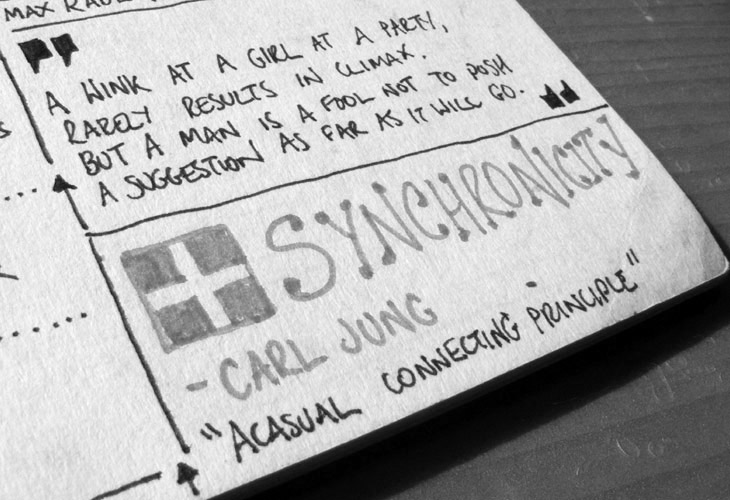 MAX
"
A WINK AT A GIRL AT A PARTY,
RARELY RESULTS IN CLIMAX.
BUT A MAN IS A FOOL NOT TO PUSH
A SUGGESTION AS FAR AS IT WILL GO. "
SYNCHRONICITY
- CARL JUNG
"ACASUAL CONNECTING PRINCIPLE"